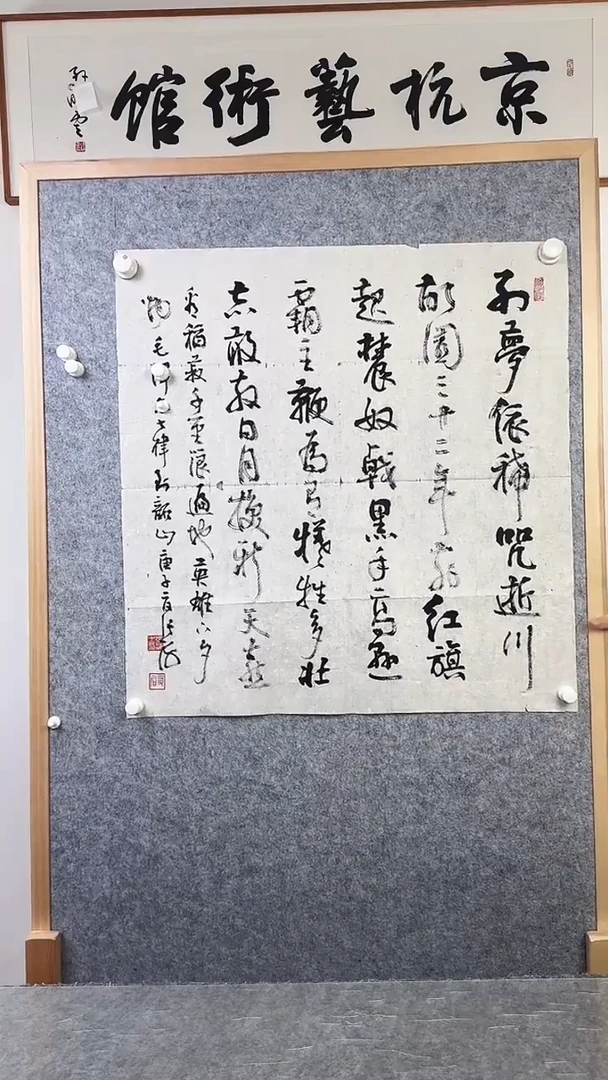 京杭藝術館
别夢依稀咒逝川
故園三十二年前红旗
起農奴戟黑手高悬
霸主鞭為有犧牲多壮
志敢教日月换新天喜
看稻菽千重浪遍地英雄下夕
烟毛泽东七律到韶山庚子夏